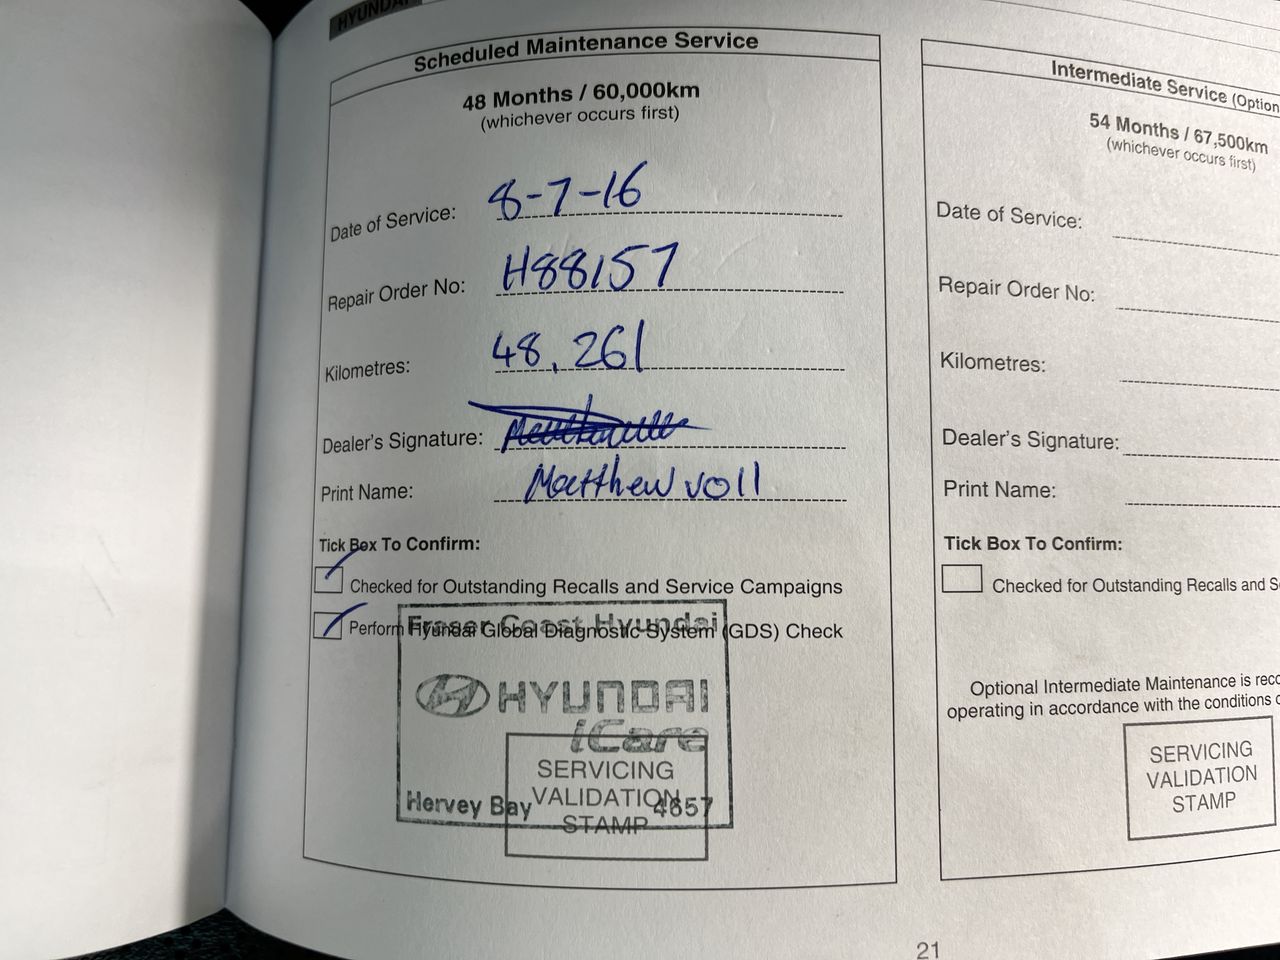 HYUNDAI
Scheduled Maintenance Service
48 Months / 60,000km
(whichever occurs first)
Date of Service: 8-7-16
Repair Order No: H88157
Kilometres: 48,261
Dealer's Signature:
Print Name: Matthew voll
Tick Box To Confirm:
Checked for Outstanding Recalls and Service Campaigns
Perform Hyundai Global Diagnostic System (GDS) Check
Fraser Coast Hyundai
HYUNDAI
iCare
Hervey Bay 4657
SERVICING
VALIDATION
STAMP
Intermediate Service (Option
54 Months / 67,500km
(whichever occurs first)
Date of Service:
Repair Order No:
Kilometres:
Dealer's Signature:
Print Name:
Tick Box To Confirm:
Checked for Outstanding Recalls and S
Optional Intermediate Maintenance is rec
operating in accordance with the conditions
SERVICING
VALIDATION
STAMP
21